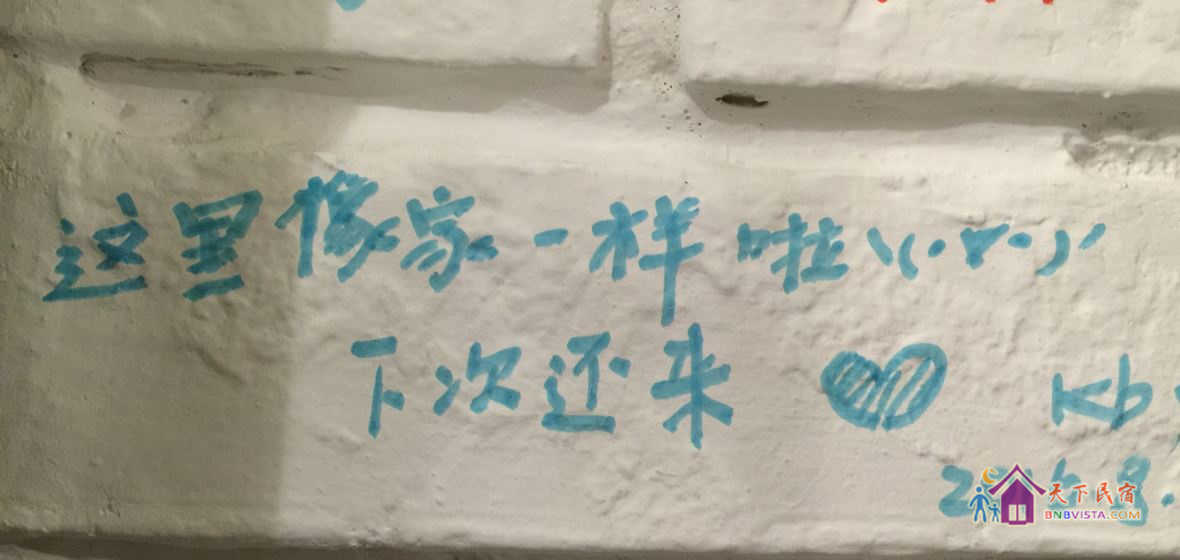 这里像家一样啦\(·∀·)/
下次还来 ♥ Kb
天下民宿
BNBVISTA.COM